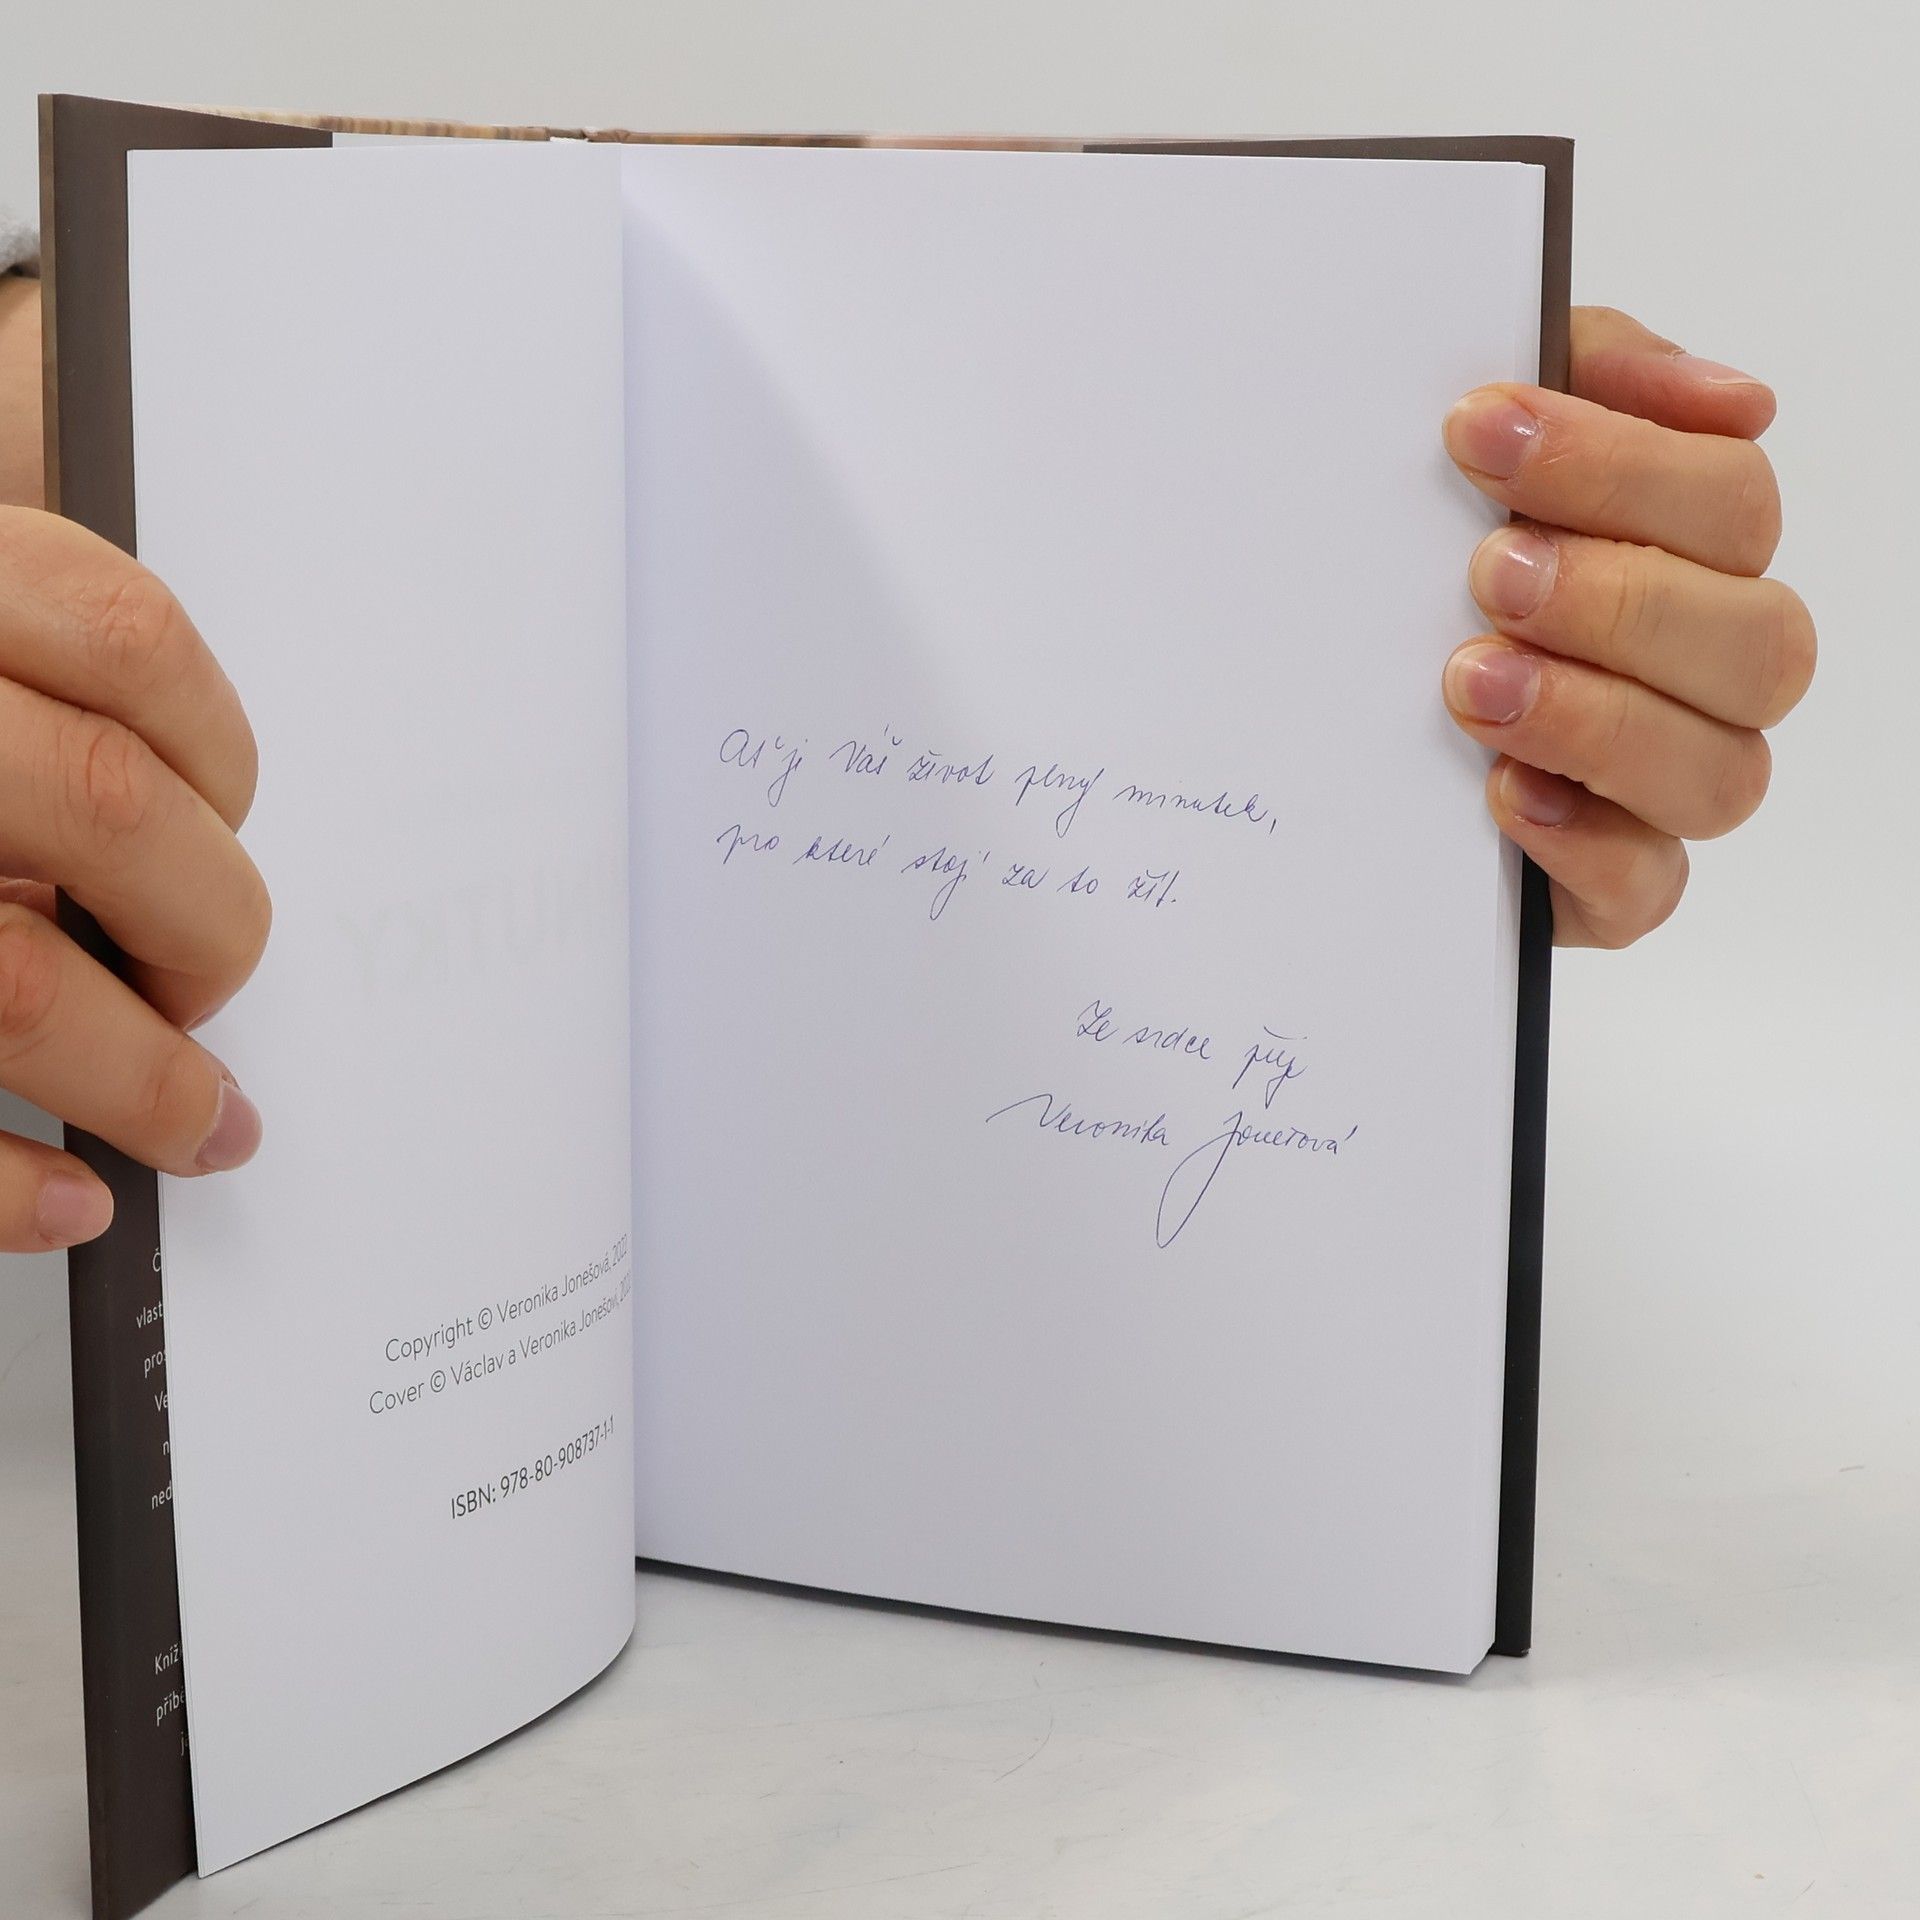 Copyright © Veronika Jonešová, 2022
Cover © Václav a Veronika Jonešovi, 202
ISBN: 978-80-908737-1-1
Ať je Váš život plný minutek,
pro které stojí za to žít.
Ze srdce přeje
Veronika Jonešová
Č
vlast
pros
Ve
n
ned
Kníž
příbě